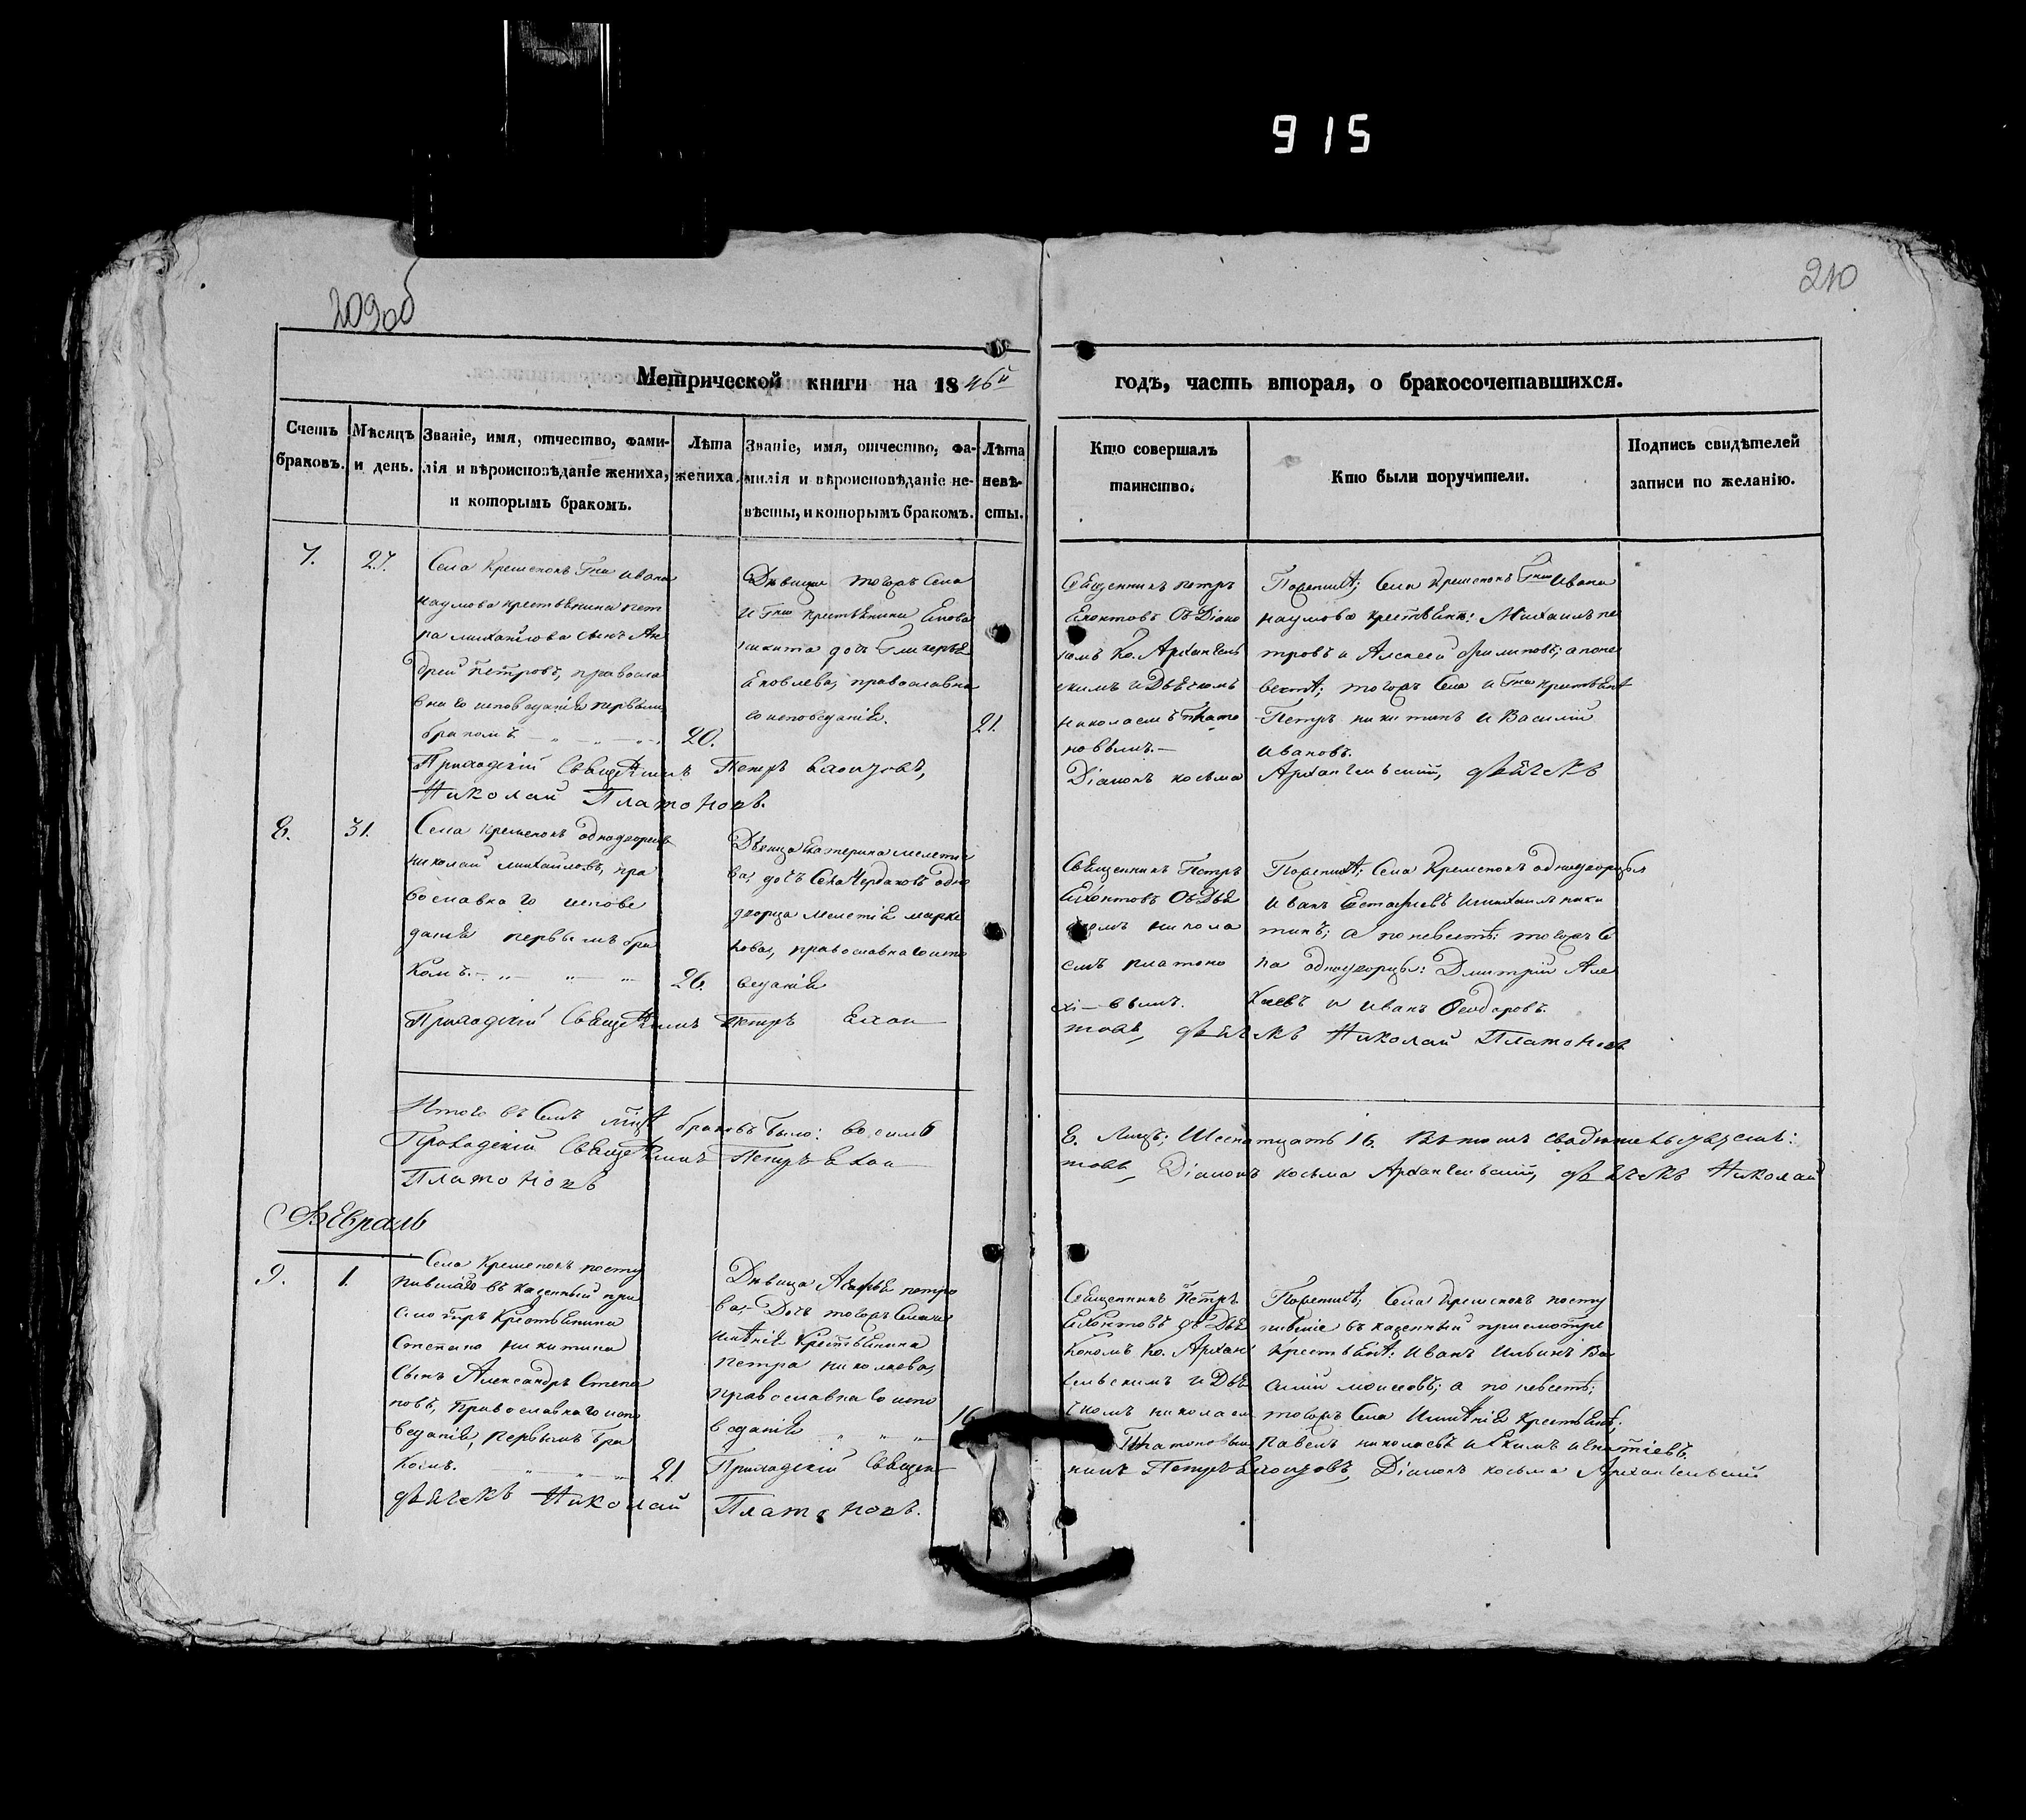 915
209об
210
Метрической книги на 1846й
годъ, часть вторая, о бракосочетавшихся.
Счетъ браковъ.
Мѣсяцъ и день.
Званіе, имя, отчество, фами-
лія и вѣроисповѣданіе жениха,
и которымъ бракомъ.
Лѣта
жениха.
Званіе, имя, отчество, фа-
милія и вѣроисповѣданіе не-
вѣсты, и которымъ бракомъ.
Лѣта
невѣ-
сты.
Кто совершалъ
таинство.
Кто были поручители.
Подпись свидѣтелей
записи по желанію.
7.
27.
Села Кременокъ Гна Ивана
Наумова крестьянина Пет
ра Михайлова сынъ Ан
дрей Петровъ, правосла
внаго исповеданія первымъ
бракомъ
20.
Дѣвица тогожъ Села
и Гна крестьянина
Никита дочь Гликерья
Яковлева, православна
го исповеданія.
21.
Священникъ Петръ
Ехонтовъ съ Діако
номъ Ко. Архангель
скимъ и Дьячкомъ
Николаемъ Плато
новымъ.
Села Кременокъ Гна Ивана
Наумова крестьяне: Михаилъ Пе
тровъ и Алексей Филиповъ; а поне
весте; тогожъ Села и Гна крестьяне
Петръ Никитинъ и Василій
Ивановъ.
Приходскій Священникъ Петръ Ехонтовъ,
Діаконъ Косьма Архангельскій, дьячекъ
Николай Платоновъ.
8.
31.
Села Кременокъ однодворецъ
Николай Михайловъ, пра
вославнаго испове
данія первымъ бра
комъ.
26.
Дѣвица Екатерина Мелетие
ва, дочь Села Чердаковъ одно
дворца Мелетія Марке
лова, православнаго испо
веданія
Священникъ Петръ
Ехонтовъ съ Дья
чкомъ Никола
емъ Плато­но
вымъ.
Села Кременокъ однодворцы
Иванъ Естафіевъ и Михаилъ Ники
тинъ; а поневесте: тогожъ Се
ла однодворцы: Дмитрій Але
ксеевъ и Иванъ Феодоровъ.
Приходскій Священникъ Петръ Ехон
товъ, дьячекъ Николай Платоновъ
Итого въ Семъ браковъ было: восимь
8. Лицъ; Шеснатцать 16. Въ томъ свидетельствуемъ:
Приходскій Священникъ Петръ Ехон
товъ, Діаконъ Косьма Архангельскій, дьячекъ Николай
Платоновъ
Февраль
9.
1.
Села Кременокъ посту
пившаго въ казенный при
смотръ Крестьянина
Степана Никитина
Сынъ Александръ Степа
новъ, православнаго испо
веданія, первымъ бра
комъ.
21.
Дѣвица Агафья Петро
ва, Дочь тогожъ Села и
имѣнія Крестьянина
Петра Николаева,
православнаго испо
веданія
16.
Священникъ Петръ
Ехонтовъ съ Діа
кономъ Ко. Арханг
ельскимъ и Дья
чкомъ Николаемъ
Платоновымъ
Села Кременокъ посту
пившіе въ казенный присмотръ
Крестьяне: Иванъ Ильинъ Ва
силій Моисеевъ; а по невесте;
тогожъ Села Имѣнія Крестьяне:
Павелъ Николаевъ и Екимъ Игнатіевъ.
Приходскій Священ
никъ Петръ Ехонтовъ, Діаконъ Косьма Архангельскій
дьячекъ Николай Платоновъ.